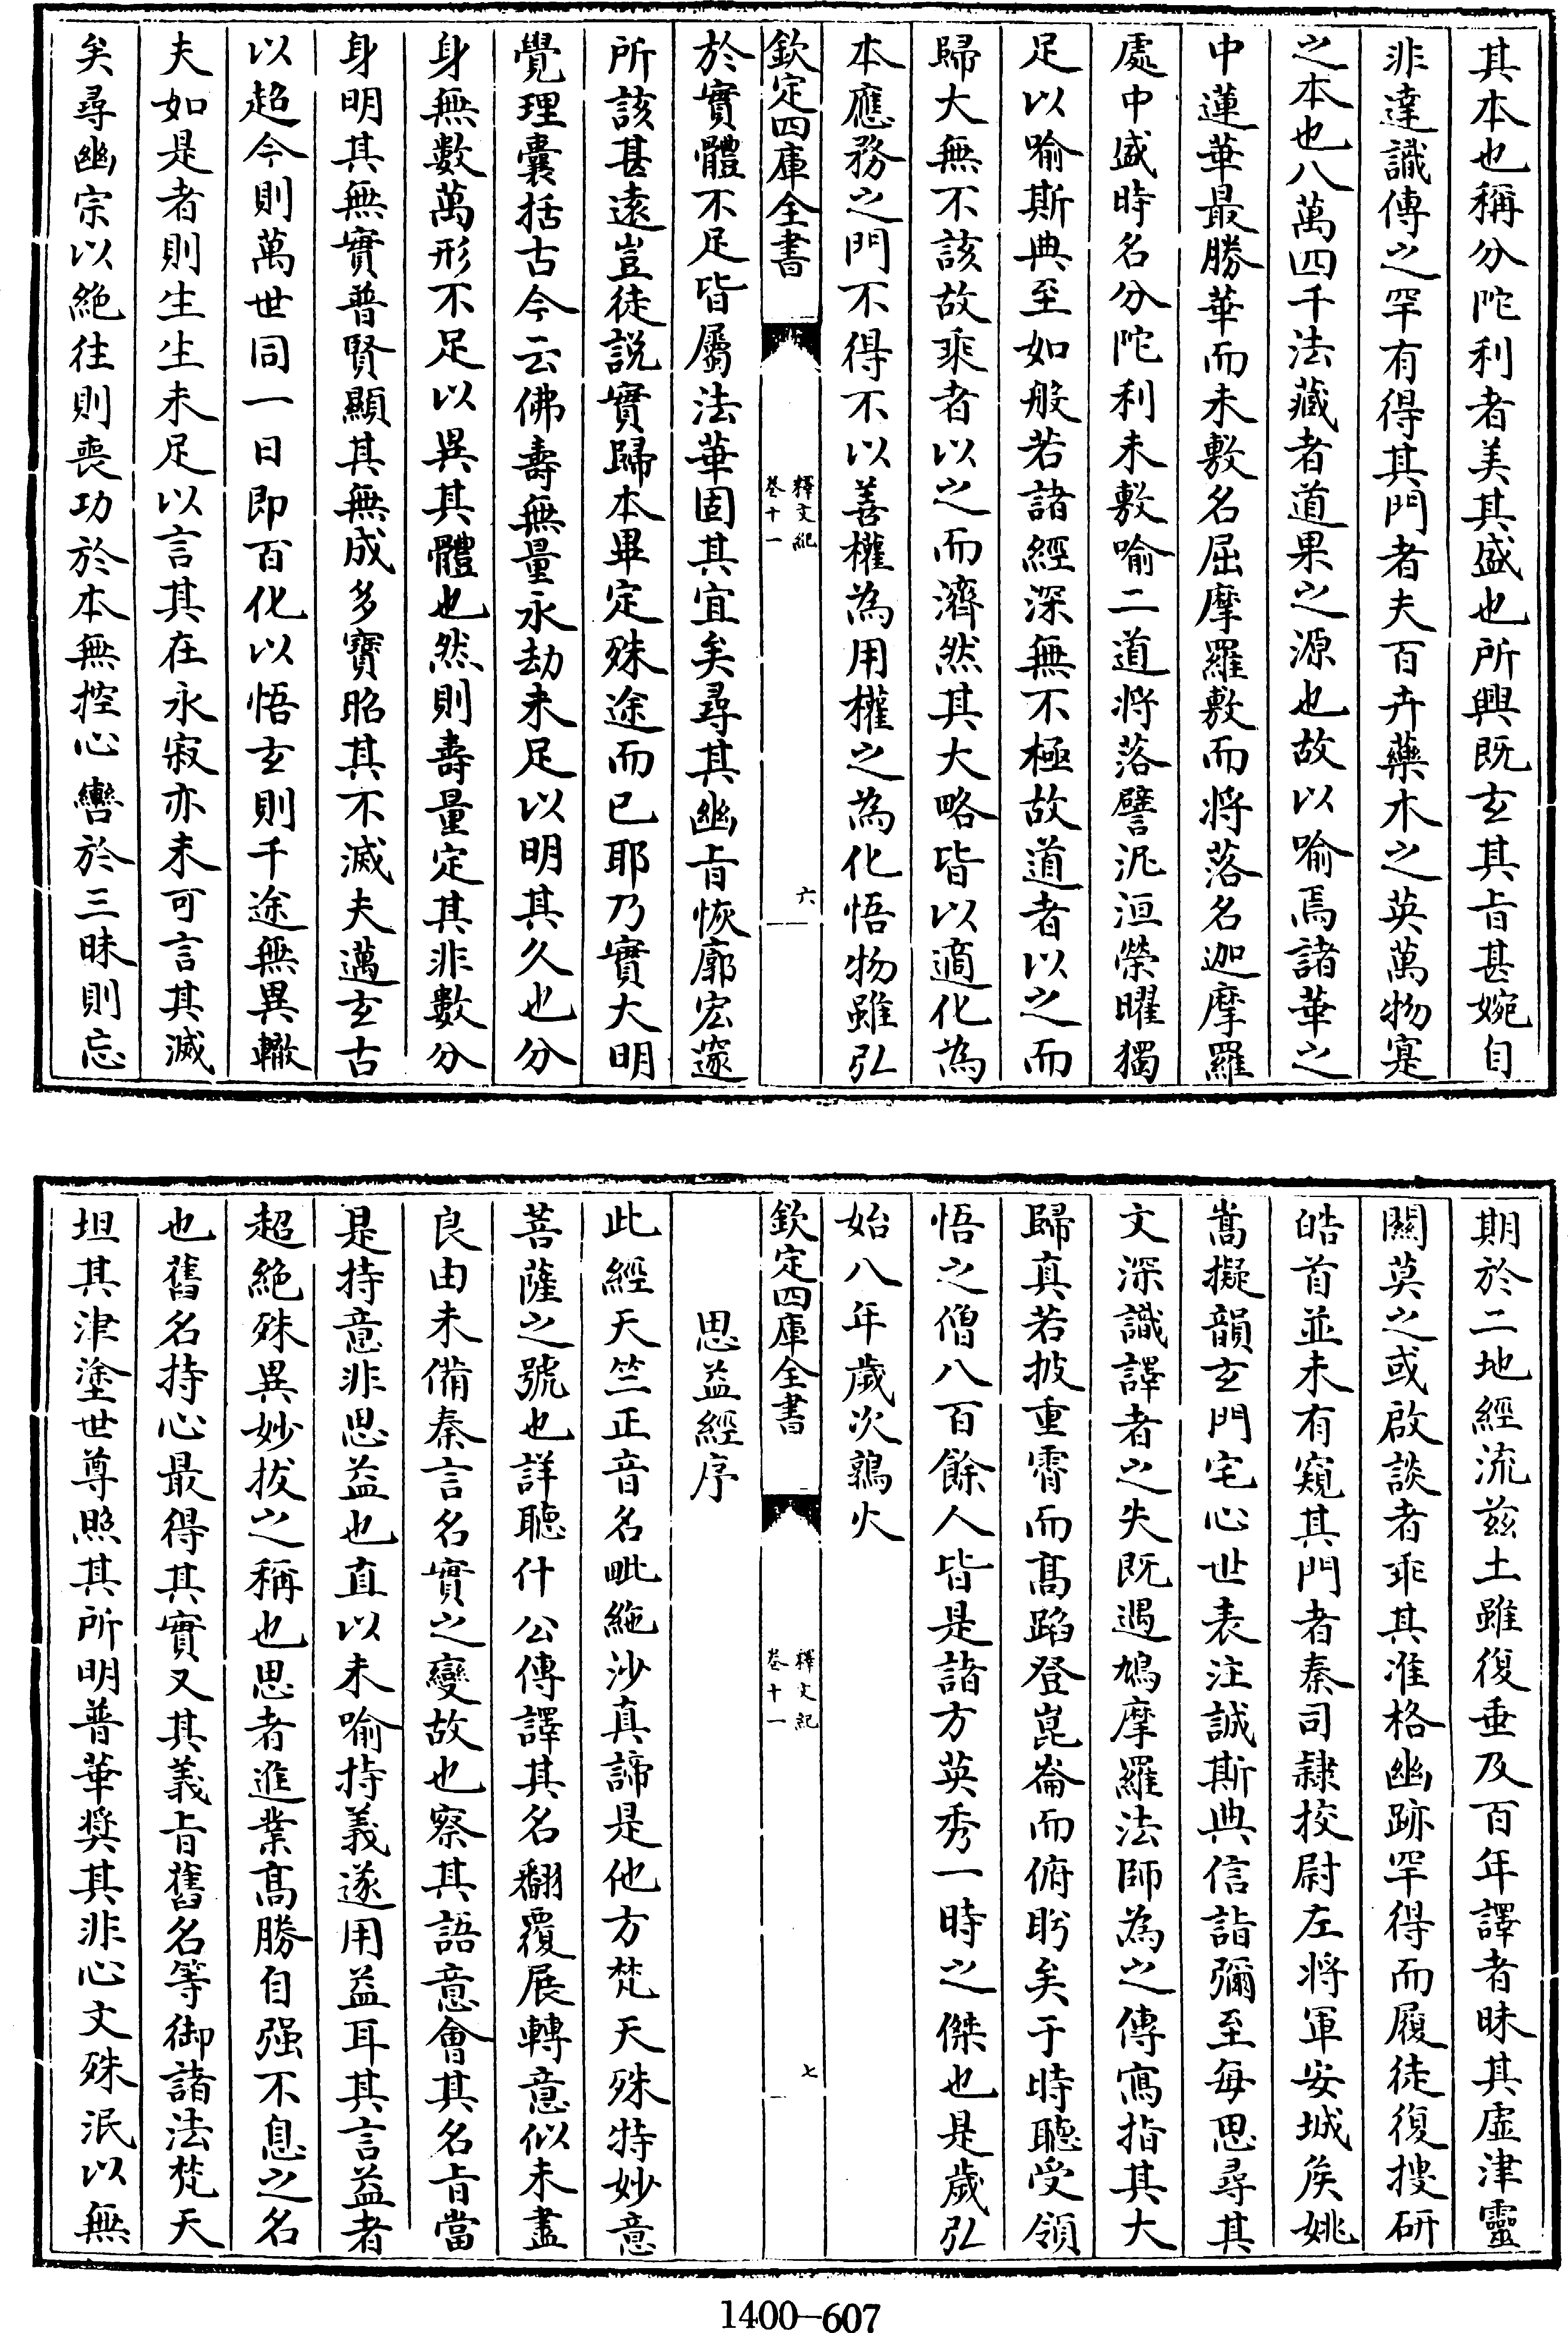 其本也稱分陀利者美其盛也所興既玄其㫖甚婉自
非達識傳之罕有得其門者夫百卉藥木之英萬物寔
之本也八萬四千法藏者道果之源也故以喻焉諸華之
中蓮華最勝華而未敷名屈摩羅敷而将落名迦摩羅
處中盛時名分陀利未敷喻二道将落譬泥洹榮曜獨
足以喻斯典至如般若諸經深無不極故道者以之而
歸大無不該故乘者以之而濟然其大略皆以適化為
本應務之門不得不以善權為用權之為化悟物雖弘
欽定四庫全書
釋文紀
卷十一
六
於實體不足皆屬法華固其宜矣尋其幽㫖恢廓宏邃
所該甚逺豈徒説實歸本畢定殊途而已耶乃實大明
覺理囊括古今云佛壽無量永劫未足以明其久也分
身無數萬形不足以異其體也然則壽量定其非數分
身明其無實普賢顯其無成多寳昭其不滅夫邁玄古
以超今則萬世同一日即百化以悟玄則千途無異轍
夫如是者則生生未足以言其在永寂亦未可言其滅
矣尋幽宗以絶往則喪功於本無控心轡於三昧則忘
期於二地經流兹土雖復垂及百年譯者昧其虚津靈
闗莫之或啟談者乖其准格幽跡罕得而履徒復搜研
皓首並未有窺其門者秦司𨽻校尉左将軍安城侯姚
嵩擬韻玄門宅心世表注誠斯典信詣彌至每思尋其
文深識譯者之失既遇鳩摩羅法師為之傳寫指其大
歸真若披重霄而髙蹈登崑崙而俯眄矣于時聽受領
悟之僧八百餘人皆是諸方英秀一時之傑也是歲弘
始八年歲次鶉火
欽定四庫全書
釋文紀
卷十一
七
思益經序
此經天竺正音名毗絁沙真諦是他方梵天殊特妙意
菩薩之號也詳聽什公傳譯其名翻覆展轉意似未盡
良由未備秦言名實之變故也察其語意會其名㫖當
是持意非思益也直以未喻持義遂用益耳其言益者
超絶殊異妙拔之稱也思者進業髙勝自强不息之名
也舊名持心最得其實又其義㫖舊名等御諸法梵天
坦其津塗世尊照其所明普華奨其非心文殊泯以無
1400—607